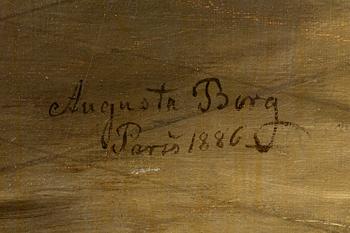 Augusta Borg
Paris 1886